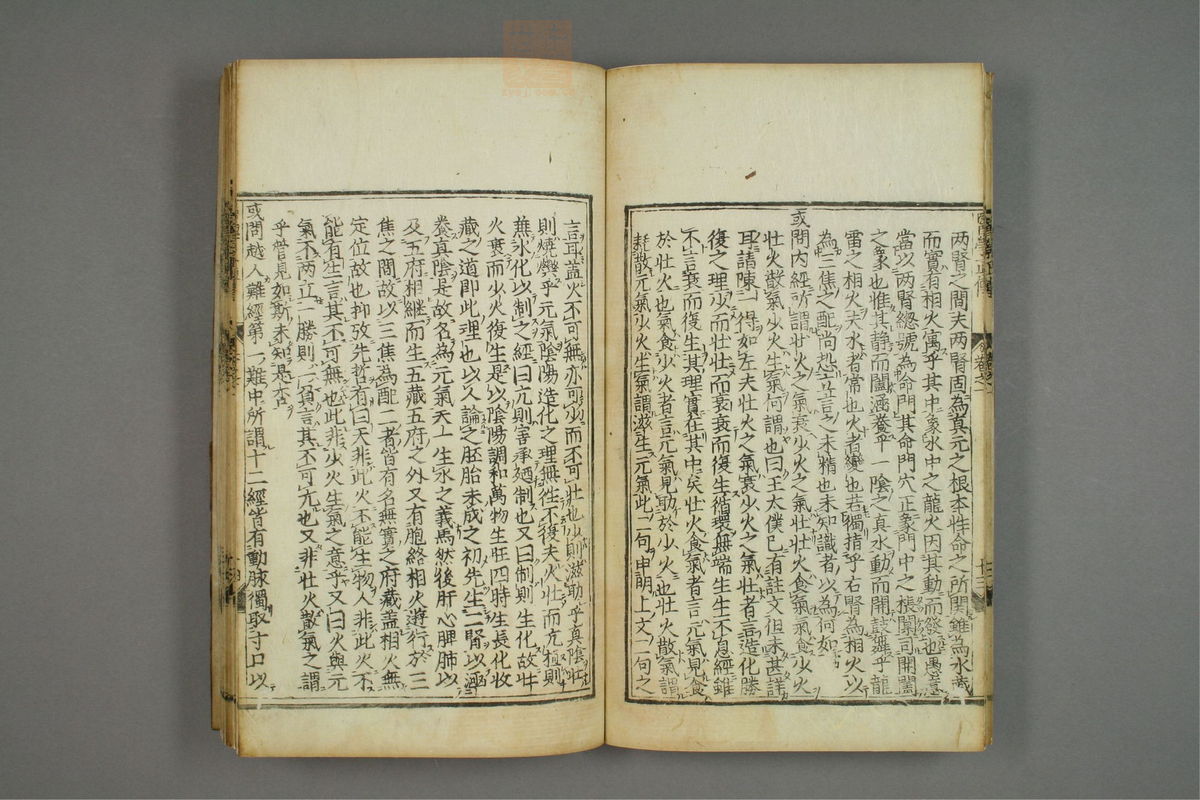 两腎之間夫两腎固為真元之根本性命之所関雖為水藏
而實有相火寓乎其中象水中之龍火因其動而發也愚意
當以两腎緫號為命門其命門穴正象門中之棖闑司開闔
之象也惟其静而闔涵養乎一陰之真水動而開鼓舞乎龍
雷之相火夫水者常也火者變也若獨指乎右腎為相火以
為三焦之配尚恐立言之未精也未知識者以為何如
或問内經所謂壮火之氣衰少火之氣壮壮火食氣氣食少火
壮火散氣少火生氣何謂也曰王太僕已有註文但未甚詳
耳請陳一得如左夫壮火之氣衰少火之氣壮者言造化勝
復之理少而壮壮而衰衰而復生循環無端生生不息經雖
不言衰而復生其理實在其中矣壮火食氣者言元氣見食
於壮火也氣食少火者言元氣見助於少火也壮火散氣謂
耗散元氣少火生氣謂滋生元氣此二句申明上文二句之
言耳蓋火不可無亦可少而不可壮也少則滋助乎真陰壮
則燒爍乎元氣陰陽造化之理無往不復夫火壮而亢極則
無水化以制之經曰亢則害承廼制也又曰制則生化故壮
火衰而少火復生是以陰陽調和萬物生旺四時生長化收
藏之道即此理也以人論之胚胎未成之初先生二腎以涵
養真陰是故名為元氣天一生水之義焉然後肝心脾肺以
及五府相継而生五藏五府之外又有胞絡相火遊行於三
焦之間故以三焦為配二者皆有名無實之府藏蓋相火無
定位故也抑攷先哲有曰天非此火不能生物人非此火不
能有生言其不可無也此非少火生氣之意乎又曰火與元
氣不两立一勝則一負言其不可亢也又非壮火散氣之謂
乎管見如斯未知是否
或問越人難經第一難中所謂十二經皆有動脉獨取寸口以